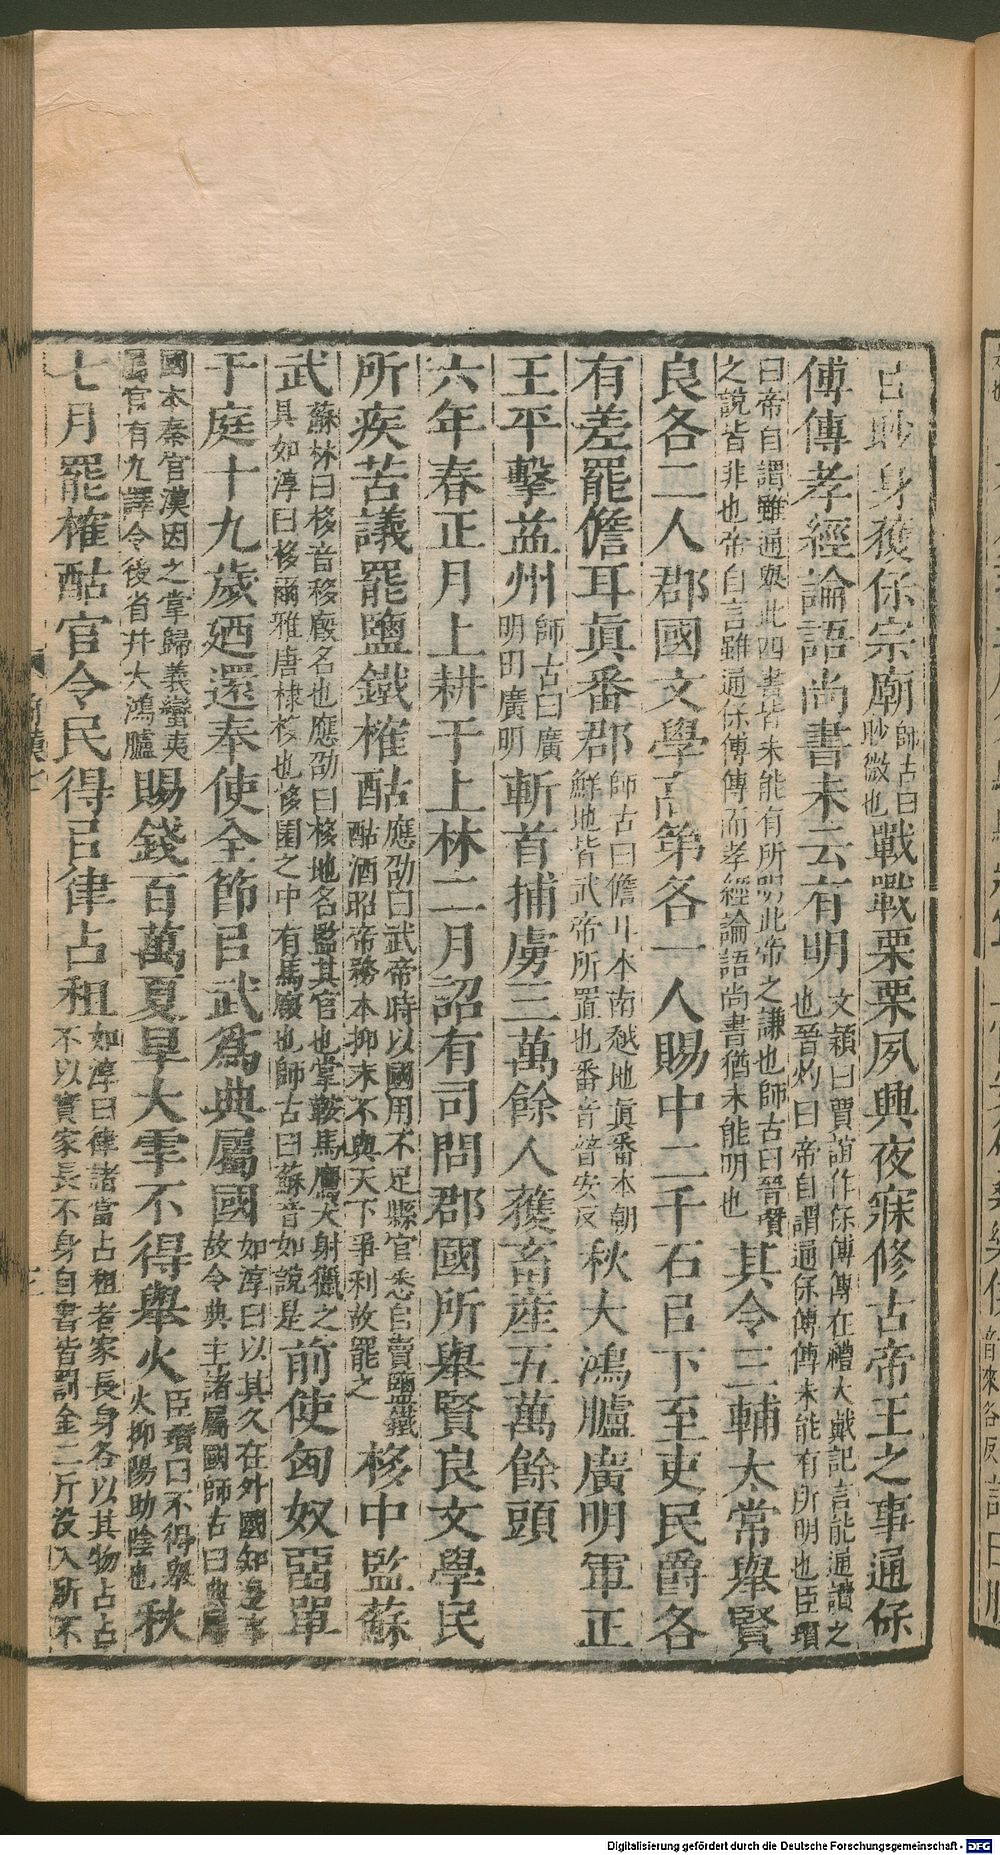 㠯眇身獲保宗廟師古曰眇微也戰戰栗栗夙興夜寐修古帝王之事通保
傅傳孝經論語尚書未云有明文穎曰賈誼作保傅傳在禮大戴記言能通讀之也晉灼曰帝自謂通保傅傳未能有所明也臣瓚
曰帝自謂雖通舉此四書皆未能有所明此帝之謙也師古曰晉瓚之說皆非也帝自言雖通保傅傳而孝經論語尚書猶未能明也其令三輔太常舉賢
良各二人郡國文學高第各一人賜中二千石㠯下至吏民爵各
有差罷儋耳眞番郡師古曰儋耳本南越地眞番本朝鮮地皆武帝所置也番音普安反秋大鴻臚廣明軍正
王平擊益州師古曰廣明田廣明斬首捕虜三萬餘人獲畜產五萬餘頭
六年春正月上耕于上林二月詔有司問郡國所舉賢良文學民
所疾苦議罷鹽鐵榷酤應劭曰武帝時以國用不足縣官悉自賣鹽鐵酤酒昭帝務本抑末不與天下爭利故罷之栘中監蘇
武蘇林曰栘音移廄名也應劭曰栘地名監其官也掌鞍馬鷹犬射獵之具如淳曰栘爾雅唐棣栘也栘園之中有馬廄也師古曰蘇音如說是前使匈奴畱單
于庭十九歲廼還奉使全節㠯武爲典屬國如淳曰以其久在外國知邊事故令典主諸屬國師古曰典屬
國本秦官漢因之掌歸義蠻夷屬官有九譯令後省并大鴻臚賜錢百萬夏旱大雩不得舉火臣瓚曰不得舉火抑陽助陰也秋
七月罷榷酤官令民得㠯律占租如淳曰律諸當占租者家長身各以其物占占不以實家長不身自書皆罰金二斤沒入所不
Digitalisierung gefördert durch die Deutsche Forschungsgemeinschaft - DFG